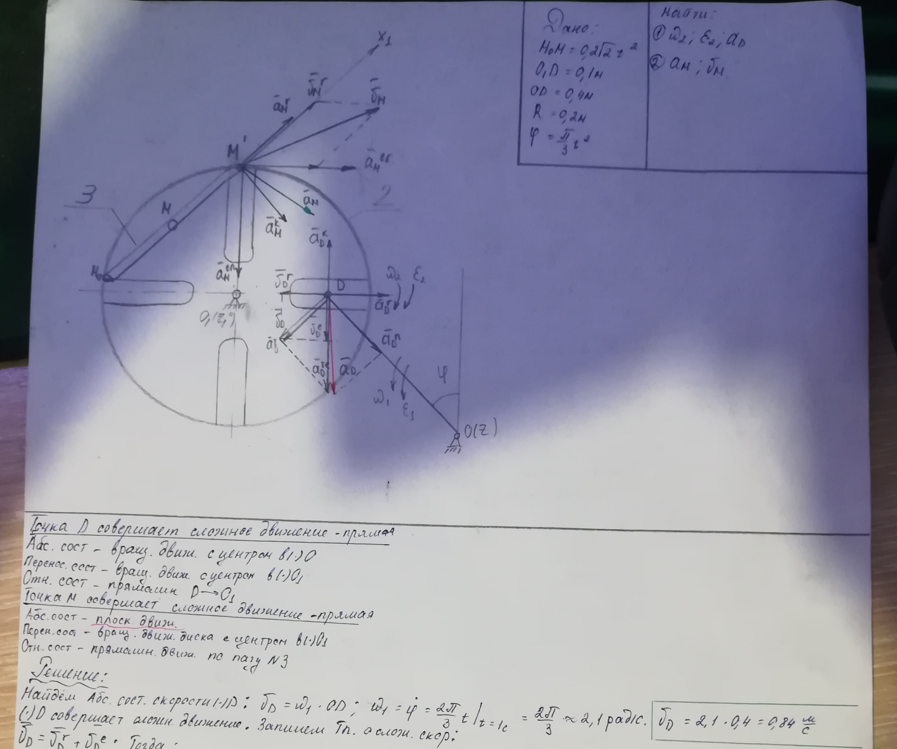 Дано:
M₀M = 0,2√2 t²
O₁D = 0,1м
OD = 0,4м
R = 0,2м
φ = π/3 t²
Найти:
① ω₂; ε₂; a_D
② a_M; v_M
x₁
M'
3
M
2
M₀
D
ω₂
ε₂
ω₁
ε₁
φ
O(z)
Точка D совершает сложное движение - прямая
Абс. сост - вращ. движ. с центром в (·) O
Перенос. сост - вращ. движ с центром в (·) O₁
Отн. сост - прямолин D→O₁
Точка M совершает сложное движение - прямая
Абс. сост - плоск движ.
Перен. сост - вращ. движ. диска с центром в (·) O₁
Отн. сост - прямолин. движ. по пазу N3
Решение:
Найдём Абс. сост. скорости (·) D: v_D = ω₁ · OD; ω₁ = φ̇ = 2π/3 t |t=1c = 2π/3 ≈ 2,1 рад/с. v_D = 2,1 · 0,4 = 0,84 м/с
(·) D совершает сложн движение. Запишем Тh. о слож. скор:
v̄_D = v̄_D^r + v̄_D^e. Тогда: